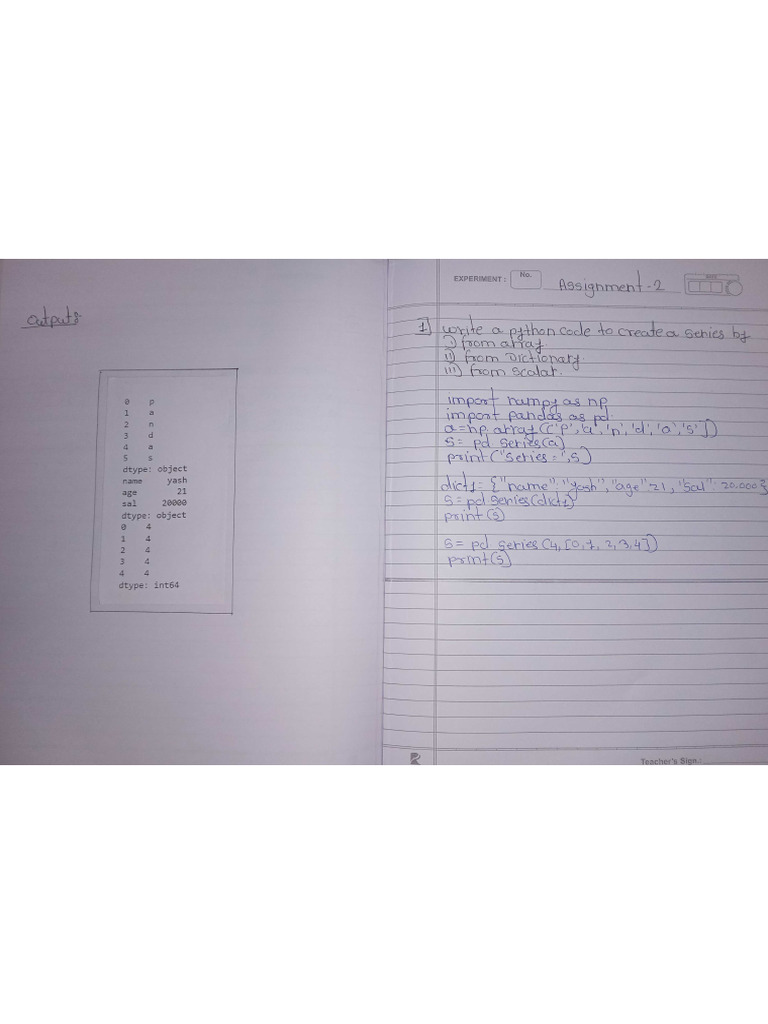 Outputs:
0 p
1 a
2 n
3 d
4 a
5 s
dtype: object
name yash
age 21
sal 20000
dtype: object
0 4
1 4
2 4
3 4
4 4
dtype: int64
EXPERIMENT : No. Assignment-2
1] write a python code to create a series by
i) from array.
ii) from Dictionary.
iii) from scalar.
import numpy as np
import pandas as pd.
a=np. array(['p','a','n','d','a','s'])
s= pd series(a)
print("series =",s)
dict1= {"name":"yash","age" 21, "sal": 20.000}
s=pd series(dict1)
print(s)
s= pd series(4,[0,1,2,3,4])
print(s)
Teacher's Sign.: